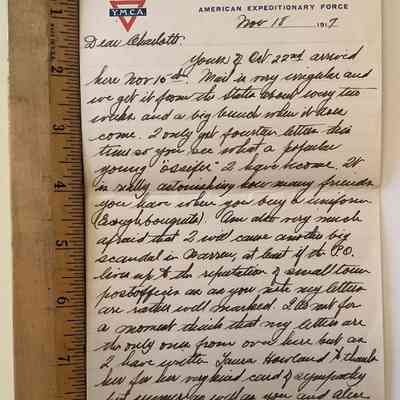 Y.M.C.A
AMERICAN EXPEDITIONARY FORCE
Nov 18 1917
Dear Charlott
Yours of Oct 22nd arrived
here Nov 15th. Mail is very irregular and
we get it from the States about every two
weeks and a big bunch when it does
come. I only get fourteen letters this
time so you see what a popular
young "ossifer" I have become. It
is really astonishing how many friends
you have when you buy a uniform
Am also very much
afraid that I will cause another big
scandal in Warren, at least if the P.O.
lives up to the reputation of small town
postoffices as you note my letters
are rather well marked. I do not for
a moment think that my letters are
the only ones from over here but as
I have written Laura Howland to thank
her for her very kind card of sympathy
as well as you and
4
5
6
7